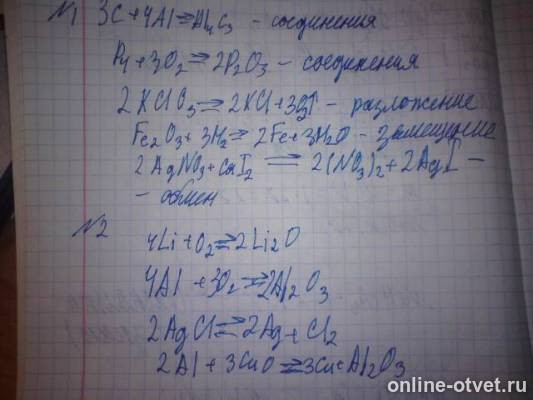 №1 3C + 4Al ⇌ Al4C3 - соединения
P4 + 3O2 ⇌ 2P2O3 - соединения
2KClO3 ⇌ 2KCl + 3O2↑ - разложение
Fe2O3 + 3H2 ⇌ 2Fe + 3H2O - замещение
2AgNO3 + CaI2 ⇌ 2(NO3)2 + 2AgI -
- обмен
№2
4Li + O2 ⇌ 2Li2O
4Al + 3O2 ⇌ 2Al2O3
2AgCl ⇌ 2Ag + Cl2
2Al + 3CuO ⇌ 3Cu + Al2O3
online-otvet.ru